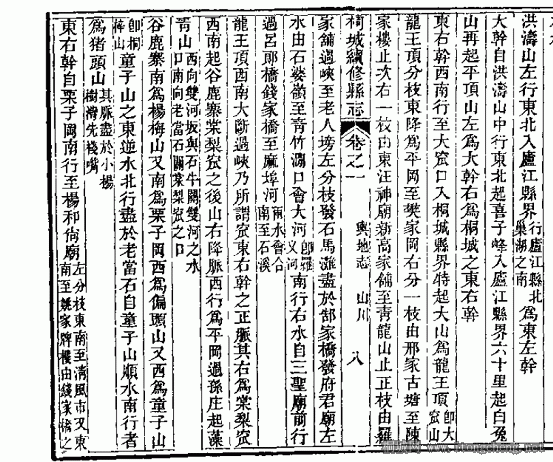 洪濤山左行東北入廬江縣界行廬江縣北巢湖之南爲東左幹
大幹自洪濤山中行東北起喜子峰入廬江縣界六十里起白兔
山再起平頂山左爲大幹右爲桐城之東右幹
東右幹西南行至大窊口入桐城縣界特起大山爲龍王頂卽大窊山
龍王頂分枝東降爲平岡至樊家岡右分一枝由邢家古塘至陳
家樓止次右一枝由東汪神廟新高家舖至青龍山止正枝由羅
桐城續修縣志 卷之一 輿地志 山川 八
家舖過峽至老人塝左分枝發石馬灘盡於郜家橋發府君廟左
水由石婆嶺至青竹澗口會大河卽羅乂河南行右水自三聖廟前行
過呂郎橋錢家橋至麻埠河兩水會合南至石溪
龍王頂西南大斷過峽乃所謂窊東右幹之正脈其右爲棠梨窊
西南起谷鹿寨棠梨窊之後山右降脈西行爲平岡過孫庄起藻
青山西向雙河坂與石牛闗雙河之水口南向老當石闗棠梨窊之口
谷鹿寨南爲楊梅山又南爲栗子岡西爲偏頭山又西爲童子山
卽桐梓山童子山之東逆水北行盡於老當石自童子山順水南行者
爲猪頭山其脈盡於小楊樹灣先棧嘴
東右幹自栗子岡南行至楊和尙廟左分枝東南至清風市又東南至姚家牌樓由錢家橋之